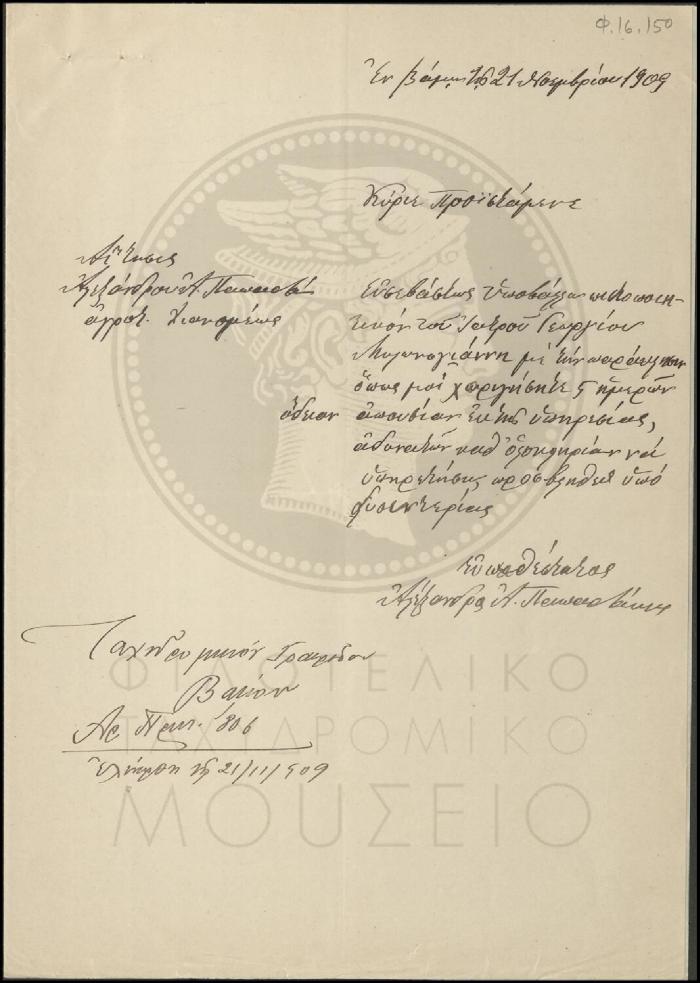 Φ.16.150
Ἐν Βάμῳ τῇ 21 Νοεμβρίου 1909
Κύριε Προϊστάμενε
Αἴτησις
Ἀλεξάνδρου Ἀ. Παπαδάκη
ἀγροτ. διανομέως
Εὐσεβάστως ὑποβάλλω πιστοποιη-
τικόν τοῦ Ἰατροῦ Γεωργίου
Μυλωνογιάννη μέ τήν παράκλησιν
ὅπως μοί χορηγήσητε 5 ἡμερῶν
ἄδειαν ἀπουσίαν ἐκ τῆς ὑπηρεσίας,
ἀδυνατῶν καθ' ὁλοκληρίαν νά
ὑπηρετήσω προσβληθείς ὑπό
δυσεντερίας
Εὐπειθέστατος
Ἀλέξανδρος Ἀ. Παπαδάκης
Ταχυδρομικόν Γραφεῖον
Βάμου
Ἀρ. Πρωτ. 806
Ἐλήφθη τῇ 21/11/909
ΦΙΛΟΤΕΛΙΚΟ
ΤΑΧΥΔΡΟΜΙΚΟ
ΜΟΥΣΕΙΟ